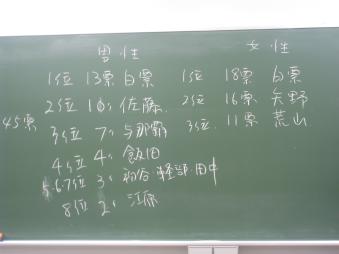 男性
1位 13票 白票
2位 10〃 佐藤
45票
3位 7〃 与那覇
4位 4〃 飯田
5.6.7位 3〃 軽部・田中
8位 2〃 江原
女性
1位 18票 白票
2位 16票 矢野
3位 11票 荒山